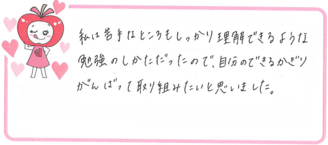 私は苦手なところもしっかり理解できるような
勉強のしかただったので、自分のできるかぎり
がんばって取り組みたいと思いました。